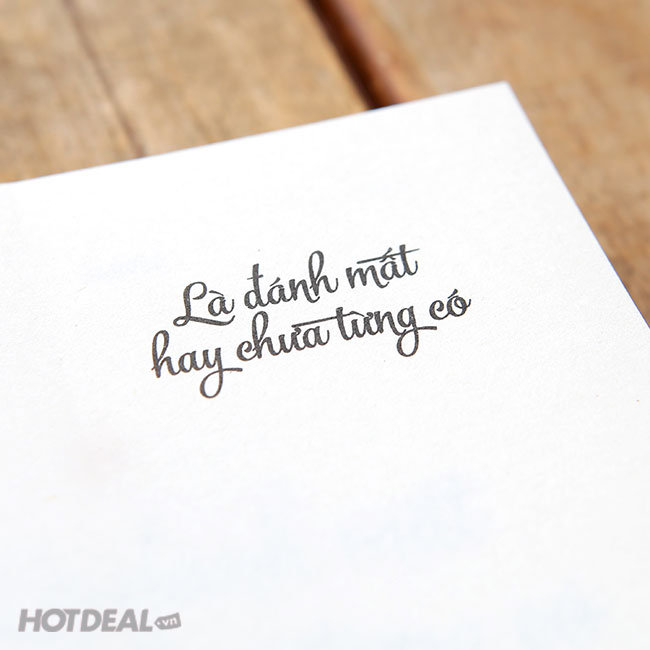 Là đánh mất
hay chưa từng có
HOTDEAL.vn